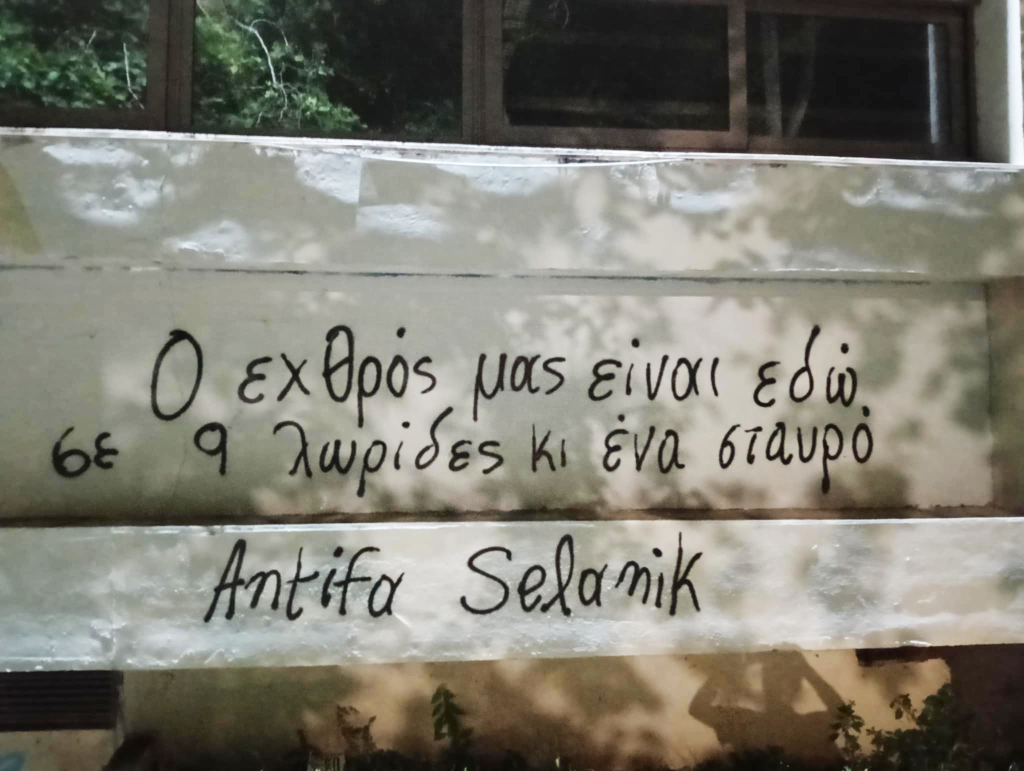 Ο εχθρός μας είναι εδώ
σε 9 λωρίδες κι ένα σταυρό
Antifa Selanik